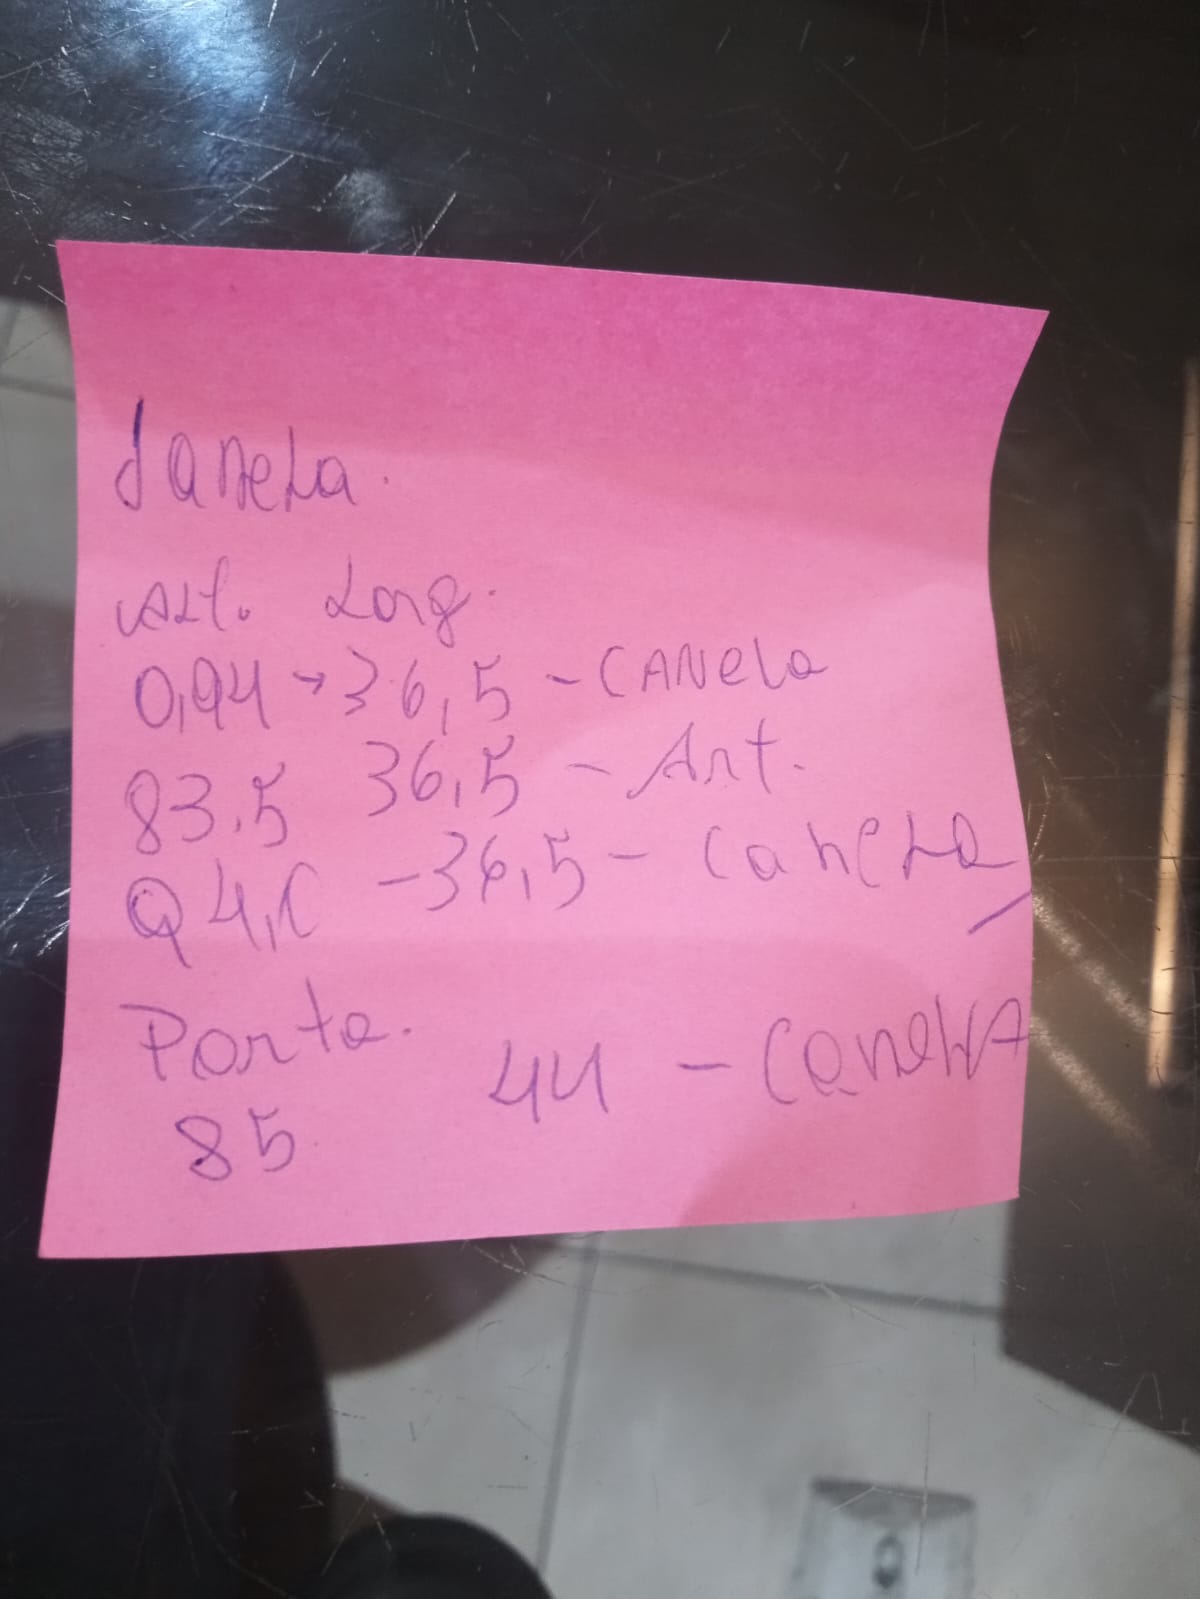 Janela.
Alt. Larg.
0,94 → 36,5 - CANELA
83.5 36,5 - Art.
94,5 - 36,5 - Canela
Porta.
85 44 - Canela